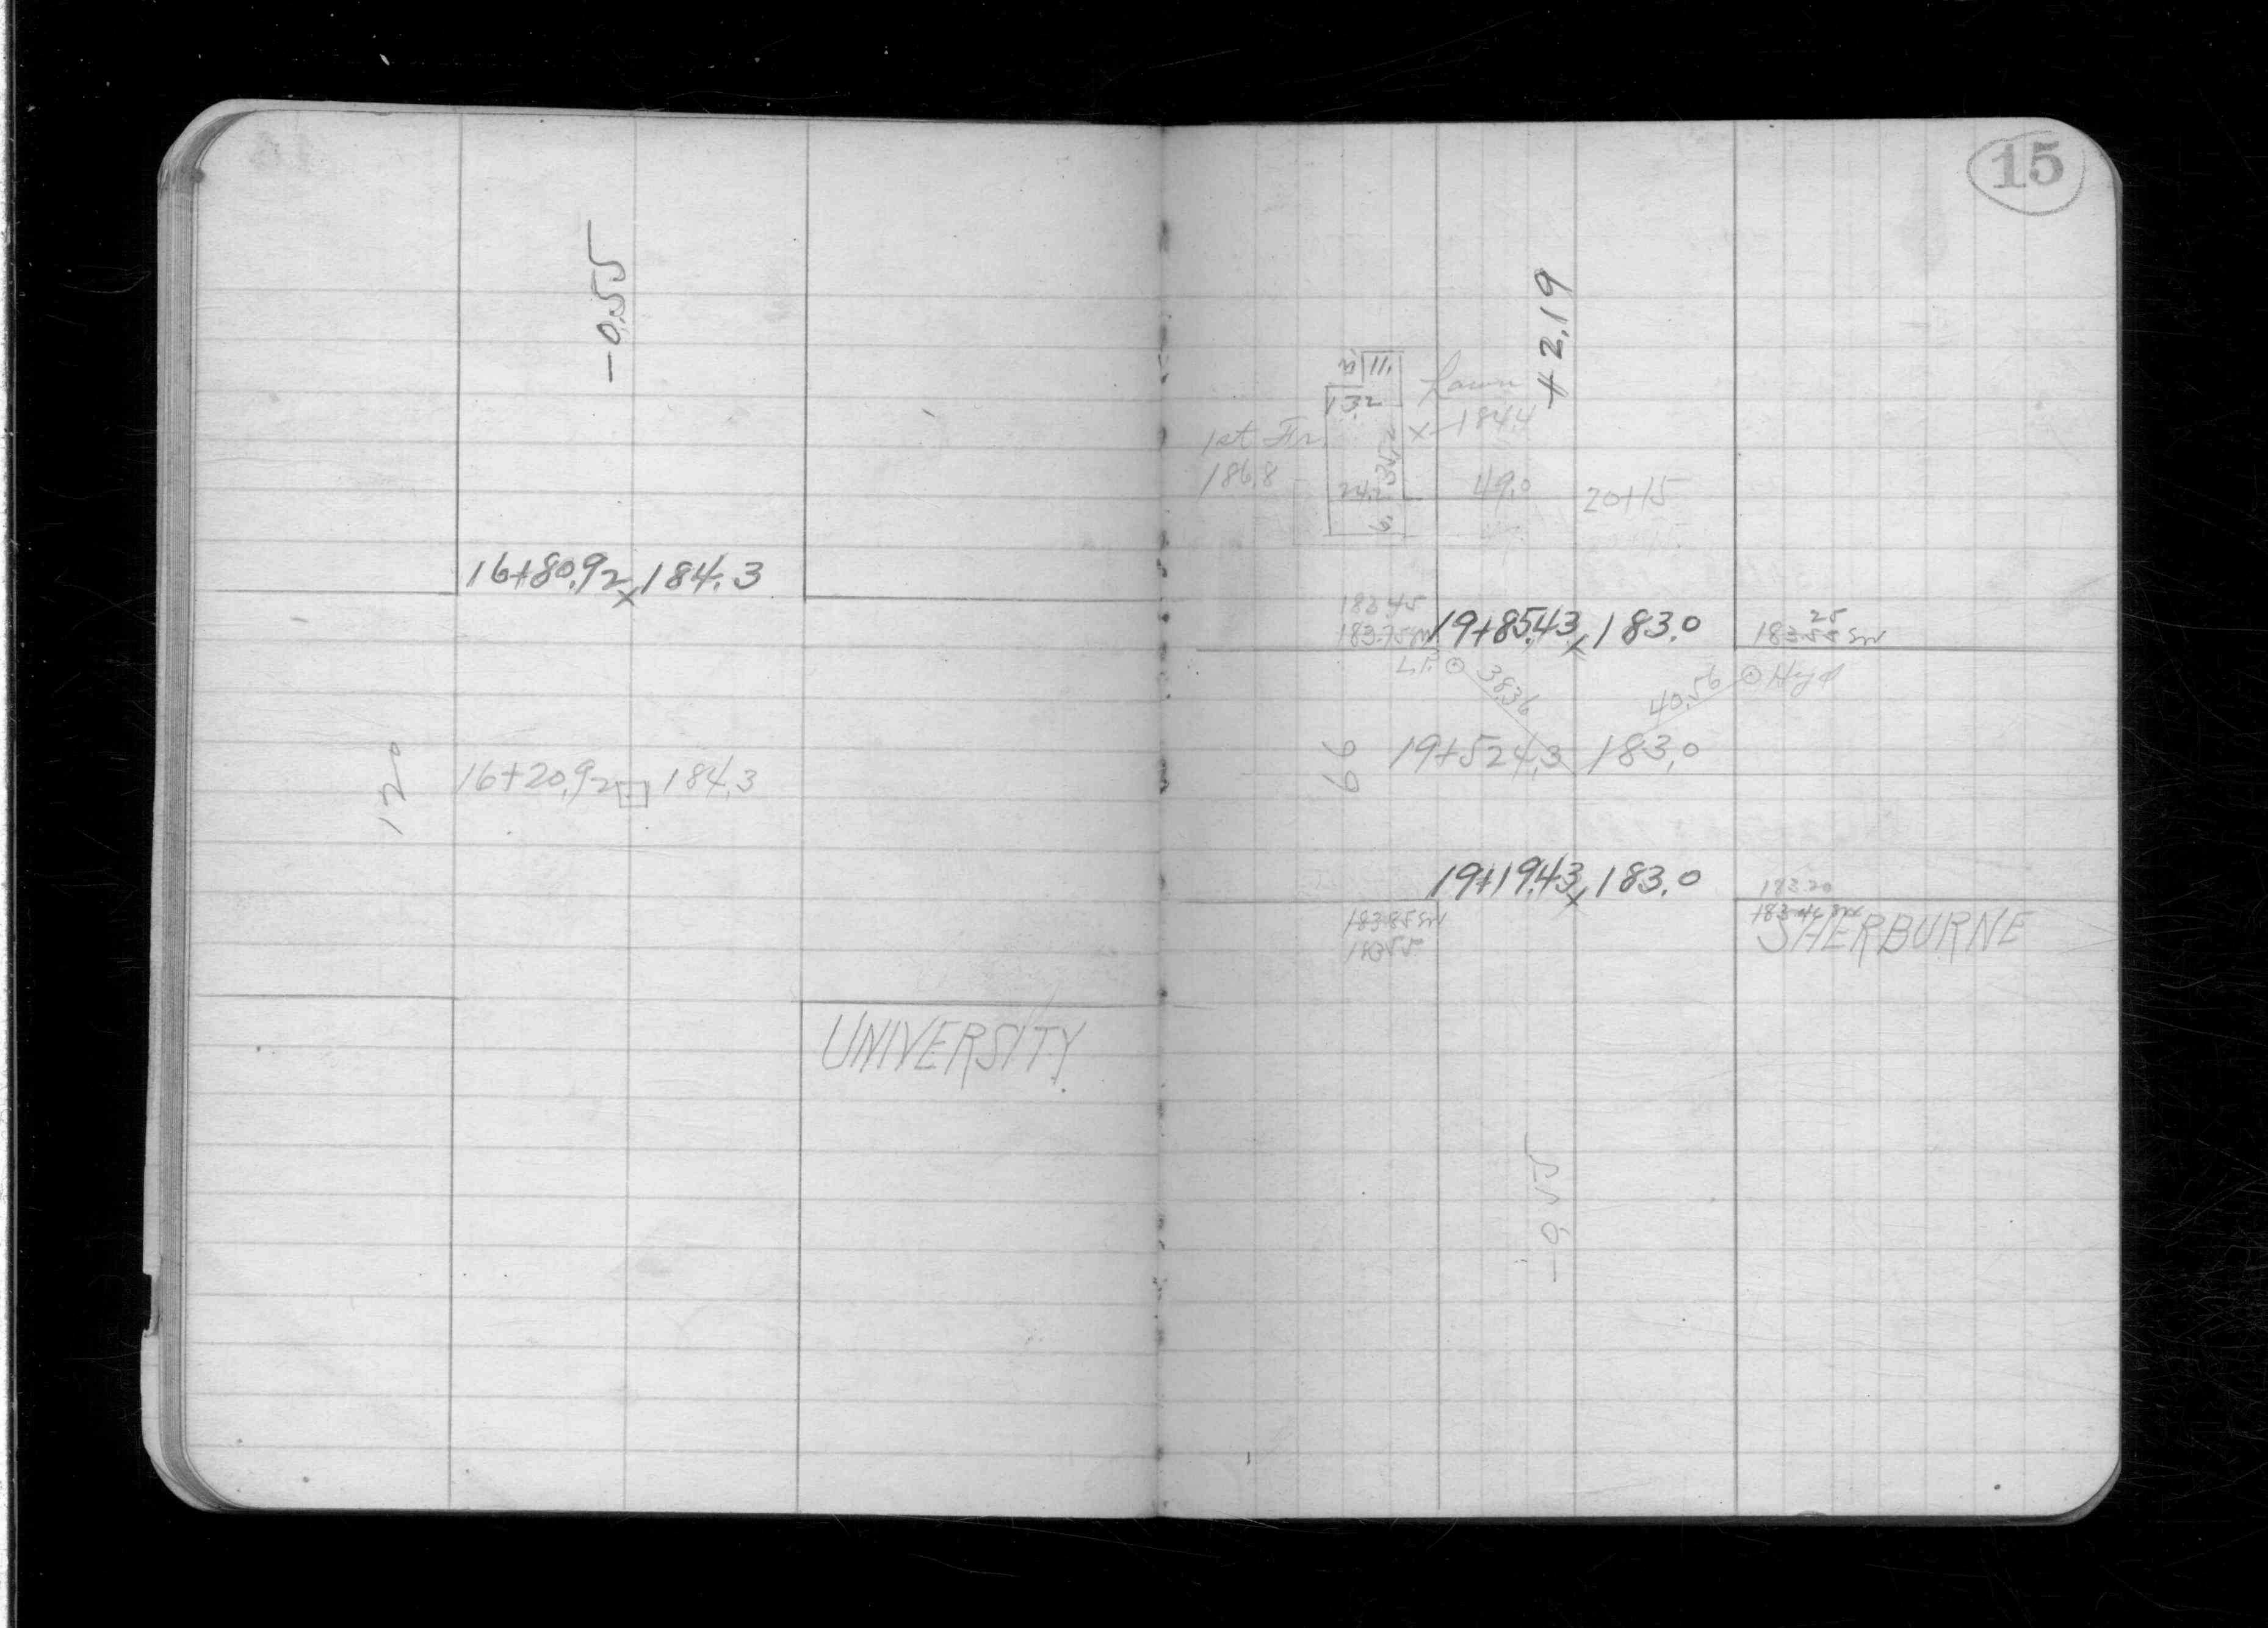 -0.55
16+80.92 x 184.3
120
16+20.92 184.3
UNIVERSITY
15
+2.19
11.
13.2
Lawn
x 184.4
1st Flr.
186.8
35.2
24.2
49.0
20+15
5
183.45
183.75 sw
19+85.43 x 183.0
25
183.55 sw
L.P. 38.36
40.56 Hyd
66
19+52.43 183.0
19+19.43 x 183.0
183.20
183.85 sw
183.55
SHERBURNE
-0.55